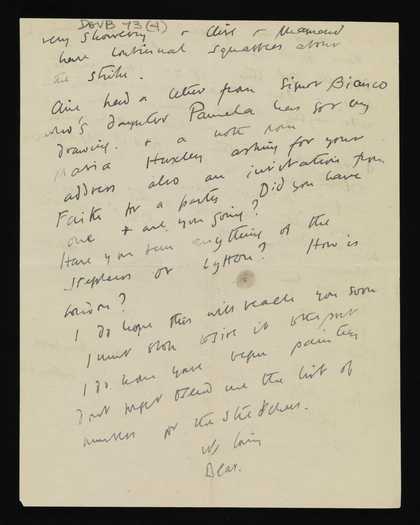 DGVB 73 (4)
very showery & Clive & Maynard
have continual squabbles about
the strike.
Clive had a letter from Signor Bianco
who's daughter Pamela has got my
drawing. & a note from
Maria Huxley asking for your
address also an invitation from
Faith for a party. Did you have
one & are you going?
Have you seen anything of the
Stephens or Lytton? How is
London?
I do hope this will reach you soon
I must stop to give it to the post
I do hope you've begun painting
Don't forget to send me the list of
numbers for the sketches.
Yr loving
Bear.